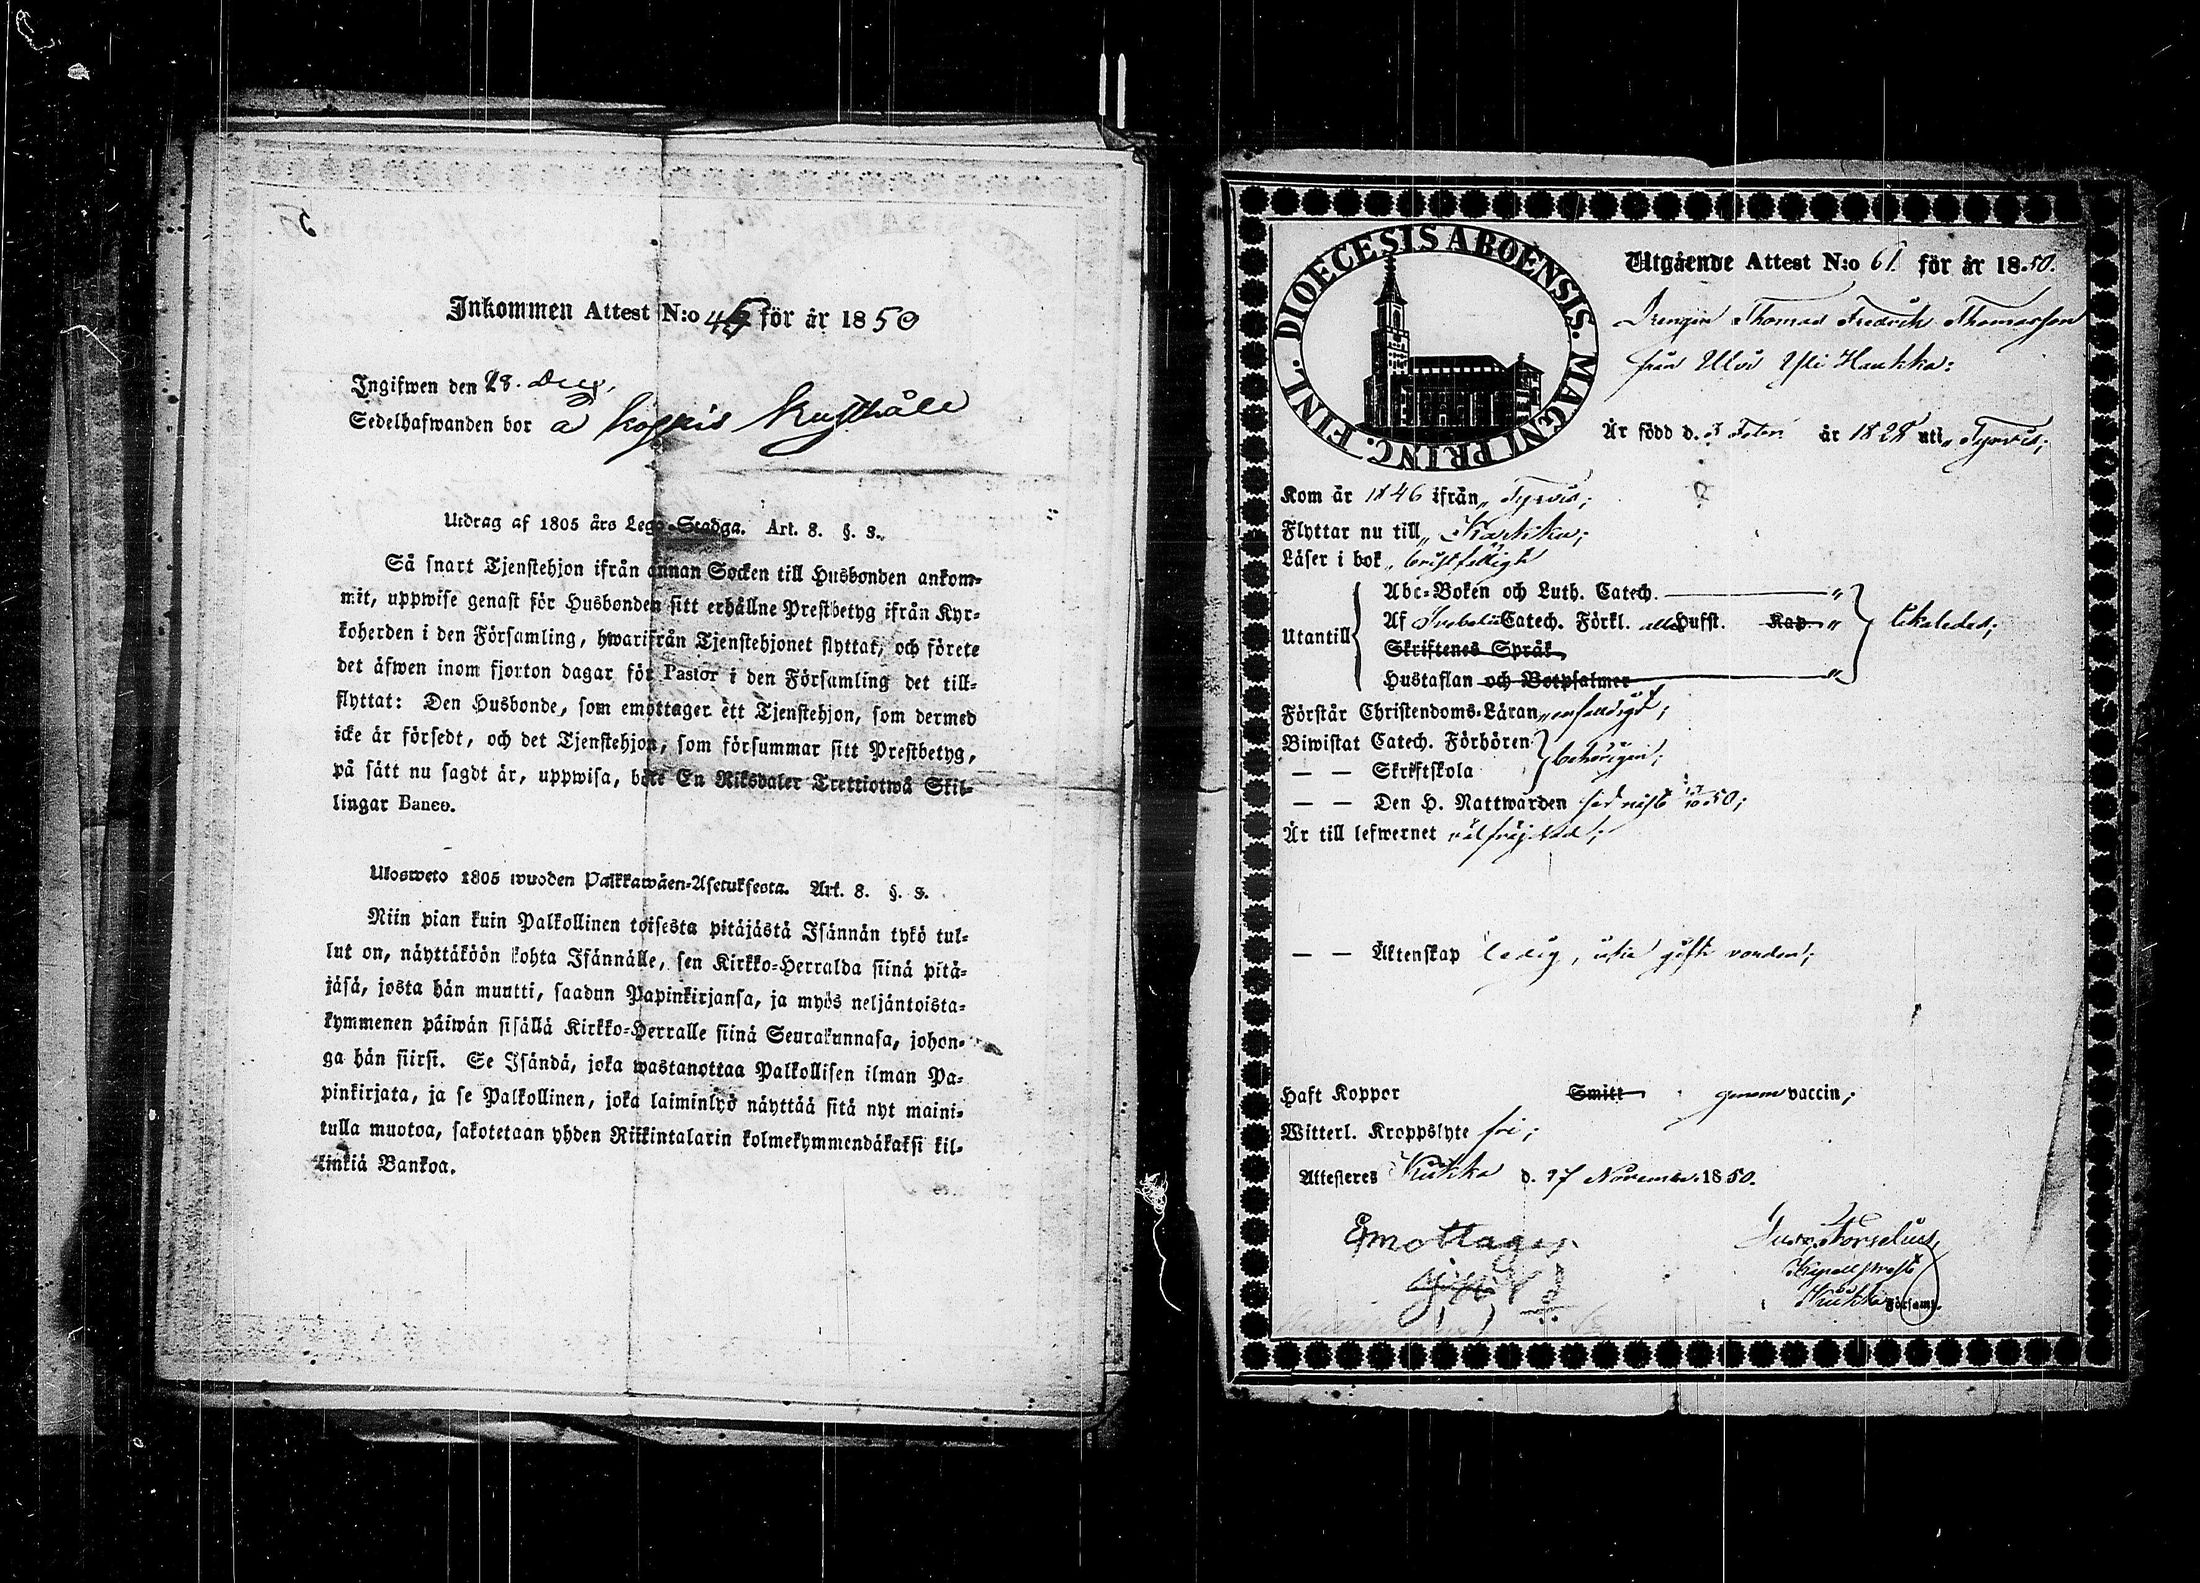 Inkommen Attest N:o för år 1850
Ingifwen den 28. Decbr.
Sedelhafwanden bor å
Utdrag af 1805 års Lego-Stadga. Art. 8. §. 3.
Så snart Tjenstehjon ifrån annan Socken till Husbonden ankom-
mit, uppwise genast för Husbonden sitt erhållne Prestbetyg ifrån Kyr-
koherden i den Församling, hwarifrån Tjenstehjonet flyttat, och förete
det äfwen inom fjorton dagar för Pastor i den Församling det till-
flyttat: Den Husbonde, som emottager ett Tjenstehjon, som dermed
icke är försedt, och det Tjenstehjon, som försummar sitt Prestbetyg,
på sätt nu sagdt är, uppwisa, böte En Riksdaler Trettiotwå Skil-
lingar Banco.
Ulosweto 1805 wuoden Palkkawäen-Asetuksesta. Art. 8. §. 3.
Niin pian kuin Palkollinen toisesta pitäjästä Isännän tykö tul-
lut on, näyttäköön kohta Isännälle, sen Kirkko-Herralda siinä pitä-
jäsä, josta hän muutti, saadun Papinkirjansa, ja myös neljäntoista-
kymmenen päiwän sisällä Kirkko-Herralle siinä Seurakunnasa, johon-
ga hän siirsi. Se Isändä, joka wastanottaa Palkollisen ilman Pa-
pinkirjata, ja se Palkollinen, joka laiminlyö näyttää sitä nyt maini-
tulla muotoa, sakotetaan yhden Riikintalarin kolmekymmendäkaksi kil-
linkiä Bankoa.
DIOECESIS ABOENSIS. MAGNI PRINC. FINL.
Utgående Attest N:o 61. för år 1850.
Drengen Thomas Fredrik Thomasson
från Ylli Haukka:
Är född d. 3 Febr: år 1828 uti Tyrvis;
Kom år 1846 ifrån Tyrvis;
Flyttar nu till Karkku;
Läser i bok bristfälligt
Abc-Boken och Luth. Catech. "
Utantill Af Svebelii Catech. Förkl. alla Hufst. Kap. "
Skriftenes Språk
Hustaflan och Botpsalmer "
Förstår Christendoms-Läran enfaldigt;
Biwistat Catech. Förhören behörigen;
— — Skriftskola
— — Den H. Nattwarden sednast 50;
Är till lefwernet välfrejdad;
— — Äktenskap ledig, utan gift vorden;
Haft Koppor Smitt genom vaccin;
Witterl. Kroppslyte fri;
Attesteres Kiikka d. 27 November 1850.
Emottages
Kapell prest
Kiikka Församl.